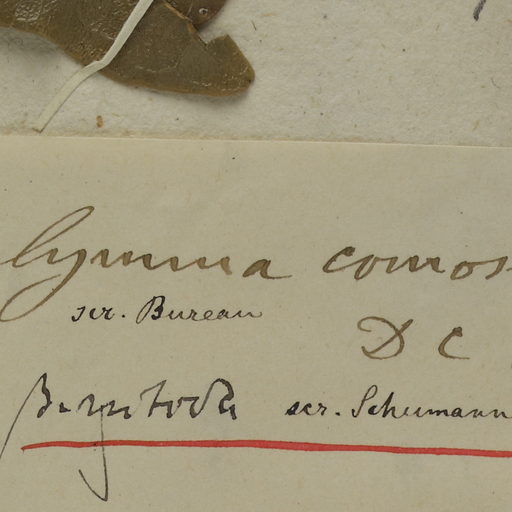 lymma comos
scr. Bureau
D C
scr. Schumann